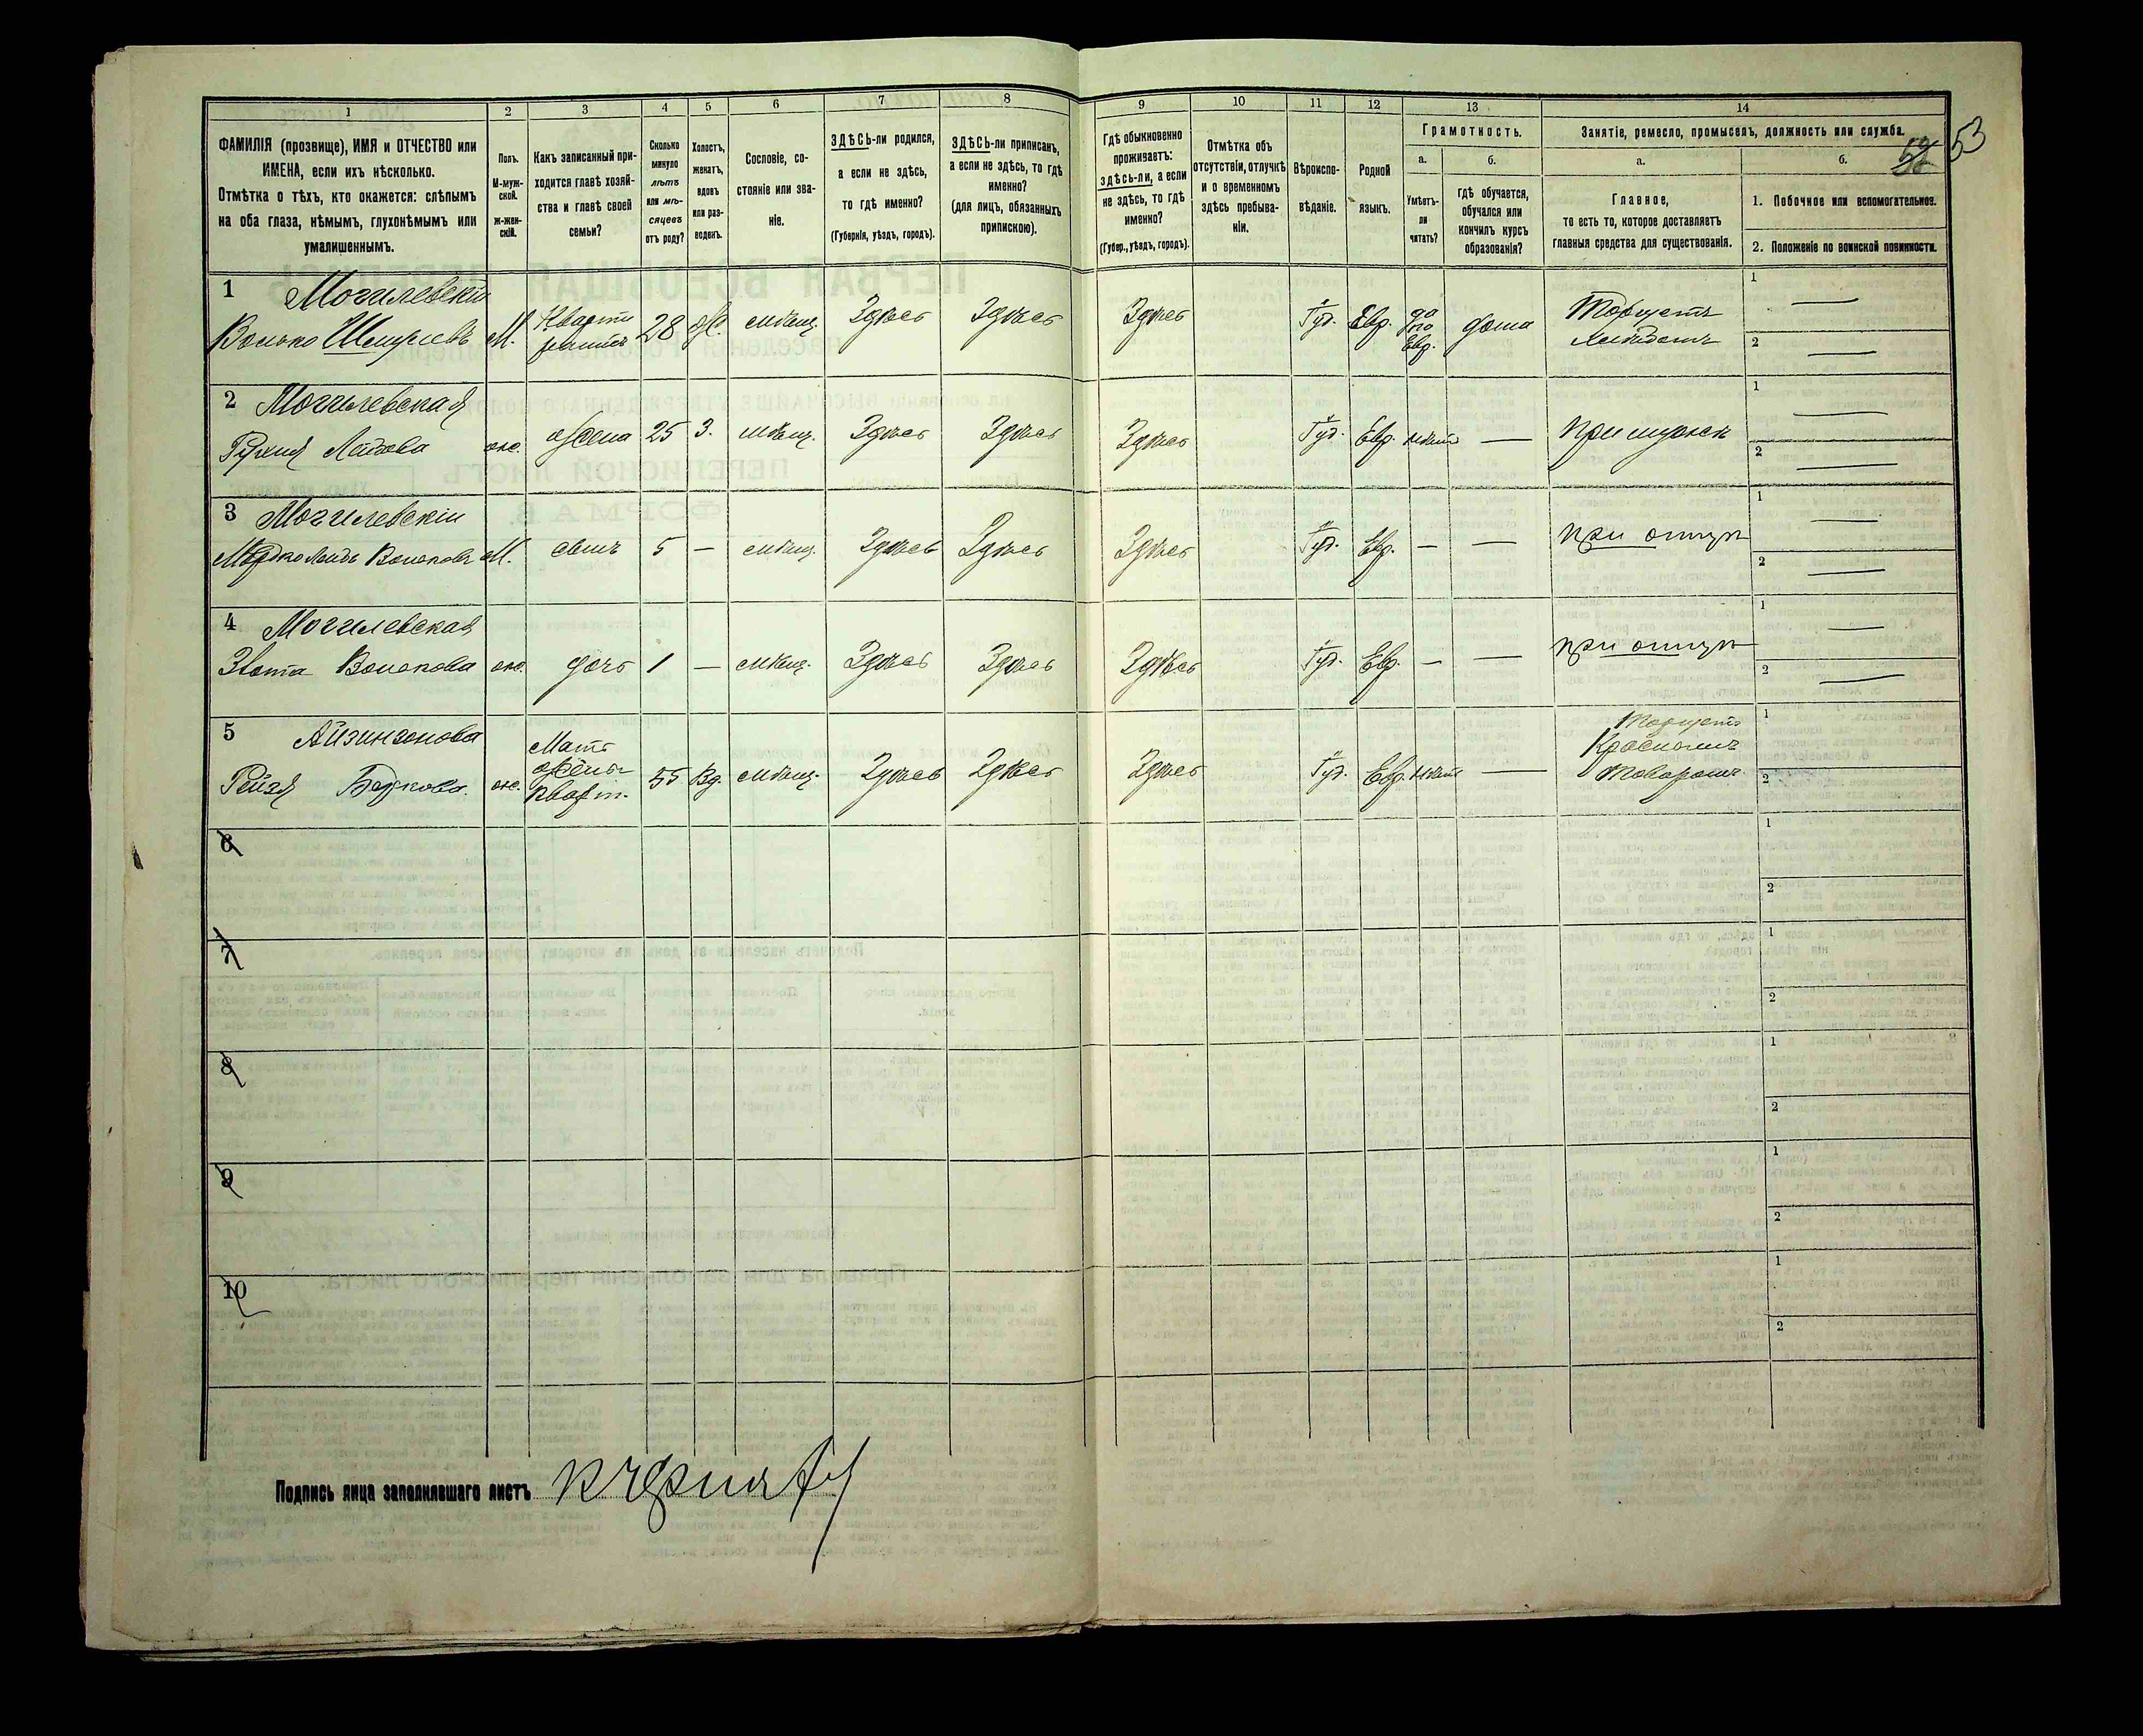 1
2
3
4
5
6
7
8
9
10
11
12
13
14
ФАМИЛІЯ (прозвище), ИМЯ и ОТЧЕСТВО или
ИМЕНА, если ихъ нѣсколько.
Отмѣтка о тѣхъ, кто окажется: слѣпымъ
на оба глаза, нѣмымъ, глухонѣмымъ или
умалишеннымъ.
Полъ.
М-муж-
ской.
Ж-жен-
скій.
Какъ записанный при-
ходится главѣ хозяй-
ства и главѣ своей
семьи?
Сколько
минуло
лѣтъ
или мѣ-
сяцевъ
отъ роду?
Холостъ,
женатъ,
вдовъ
или раз-
веденъ.
Сословіе, со-
стояніе или зва-
ніе.
ЗДѢСЬ-ли родился,
а если не здѣсь,
то гдѣ именно?
(Губернія, уѣздъ, городъ).
ЗДѢСЬ-ли приписанъ,
а если не здѣсь, то гдѣ
именно?
(для лицъ, обязанныхъ
припискою).
Гдѣ обыкновенно
проживаетъ:
здѣсь-ли, а если
не здѣсь, то гдѣ
именно?
(Губер., уѣздъ, городъ).
Отмѣтка объ
отсутствіи, отлучкѣ
и о временномъ
здѣсь пребыва-
ніи.
Вѣроиспо-
вѣданіе.
Родной
языкъ.
Грамотность.
а.
Умѣетъ-
ли
читать?
б.
Гдѣ обучается,
обучался или
кончилъ курсъ
образованія?
Занятіе, ремесло, промыселъ, должность или служба.
53
а.
Главное,
то есть то, которое доставляетъ
главныя средства для существованія.
б.
1. Побочное или вспомогательное.
2. Положеніе по воинской повинности.
1 Могилевскій
Волько Шмулевъ М. Кварти рантъ 28 Ж. мѣщ. Здѣсь Здѣсь Здѣсь Іуд. Евр. да по Евр. дома Торгуетъ хлѣбомъ 1 — 2 —
2 Могилевская
Рухля Лейбова ж. жена 25 З. мѣщ. Здѣсь Здѣсь Здѣсь Іуд. Евр. нѣтъ — при мужѣ 1 — 2 —
3 Могилевскій
Мордко Лейбъ Вольковъ М. сынъ 5 — мѣщ. Здѣсь Здѣсь Здѣсь Іуд. Евр. — — при отцѣ 1 — 2 —
4 Могилевская
Злота Волькова ж. дочь 1 — мѣщ. Здѣсь Здѣсь Здѣсь Іуд. Евр. — — при отцѣ 1 — 2 —
5 Айзингонова
Рейзя Беркова. ж. Мать жены кварт. 55 Вд. мѣщ. Здѣсь Здѣсь Здѣсь Іуд. Евр. нѣтъ — Торгуетъ Краснымъ товаромъ 1 2
6 1 2
7 1 2
8 1 2
9 1 2
10 1 2
Подпись лица заполнявшаго листъ